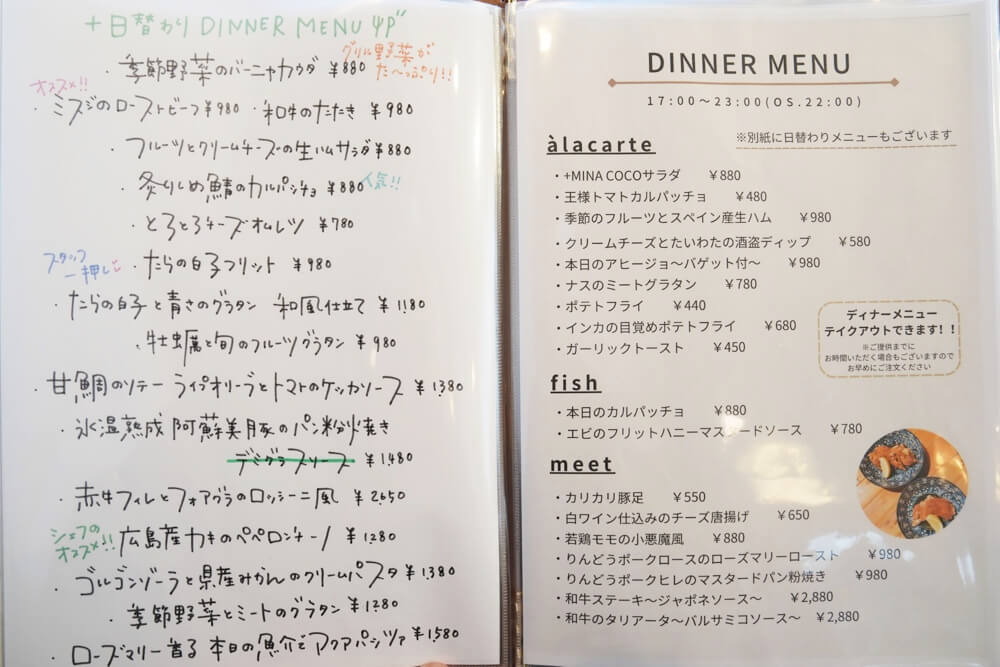 +日替わり DINNER MENU
グリル野菜が
た〜っぷり!!
・季節野菜のバーニャカウダ ¥880
オススメ!!
・ミスジのローストビーフ ¥980 ・和牛のたたき ¥980
・フルーツとクリームチーズの生ハムサラダ ¥880
・炙りしめ鯖のカルパッチョ ¥880 人気!!
・とろとろチーズオムレツ ¥780
スタッフ
一押し
・たらの白子フリット ¥980
・たらの白子と青さのグラタン 和風仕立て ¥1,180
・牡蠣と旬のフルーツグラタン ¥980
・甘鯛のソテー ライプオリーブとトマトのケッカソース ¥1,380
・氷温熟成 阿蘇美豚のパン粉焼き
デミグラスソース ¥1,480
・赤牛フィレとフォアグラのロッシーニ風 ¥2,650
シェフの
オススメ!!
広島産カキのペペロンチーノ ¥1,280
・ゴルゴンゾーラと県産みかんのクリームパスタ ¥1,380
・季節野菜とミートのグラタン ¥1,280
・ローズマリー香る 本日の魚介とアクアパッツァ ¥1,580
DINNER MENU
17:00〜23:00(OS.22:00)
※別紙に日替わりメニューもございます
àlacarte
・+MINA COCOサラダ ¥880
・王様トマトカルパッチョ ¥480
・季節のフルーツとスペイン産生ハム ¥980
・クリームチーズとたいわたの酒盗ディップ ¥580
・本日のアヒージョ〜バゲット付〜 ¥980
・ナスのミートグラタン ¥780
・ポテトフライ ¥440
・インカの目覚めポテトフライ ¥680
・ガーリックトースト ¥450
ディナーメニュー
テイクアウトできます！！
※ご提供までに
お時間いただく場合もございますので
お早めにご注文ください
fish
・本日のカルパッチョ ¥880
・エビのフリットハニーマスタードソース ¥780
meet
・カリカリ豚足 ¥550
・白ワイン仕込みのチーズ唐揚げ ¥650
・若鶏モモの小悪魔風 ¥880
・りんどうポークロースのローズマリーロースト ¥980
・りんどうポークヒレのマスタードパン粉焼き ¥980
・和牛ステーキ〜ジャポネソース〜 ¥2,880
・和牛のタリアータ〜バルサミコソース〜 ¥2,880